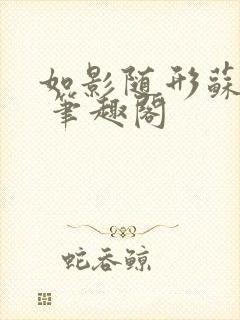 如影随形蘇
笔趣阁
蛇吞鲸